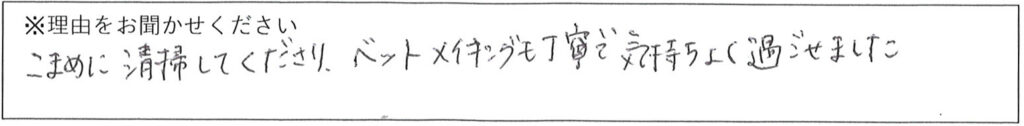 ※理由をお聞かせください
こまめに清掃してくださり、ベットメイキングも丁寧で気持ちよく過ごせました